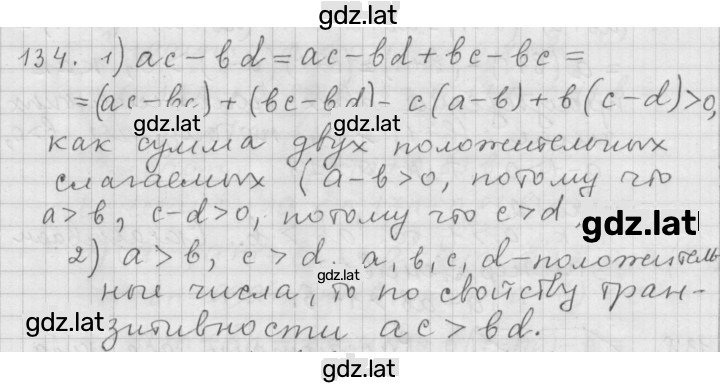 gdz.lat
134. 1) ac - bd = ac - bd + bc - bc =
= (ac - bc) + (bc - bd) = c(a-b) + b(c-d) > 0,
gdz.lat gdz.lat
как сумма двух положительных
слагаемых (a-b>0, потому что
a>b, c-d>0, потому что c>d
gdz.lat
2) a>b, c>d. a, b, c, d-положитель
gdz.lat
ные числа, то по свойству тран-
gdz.lat
зитивности ac>bd.
gdz.lat